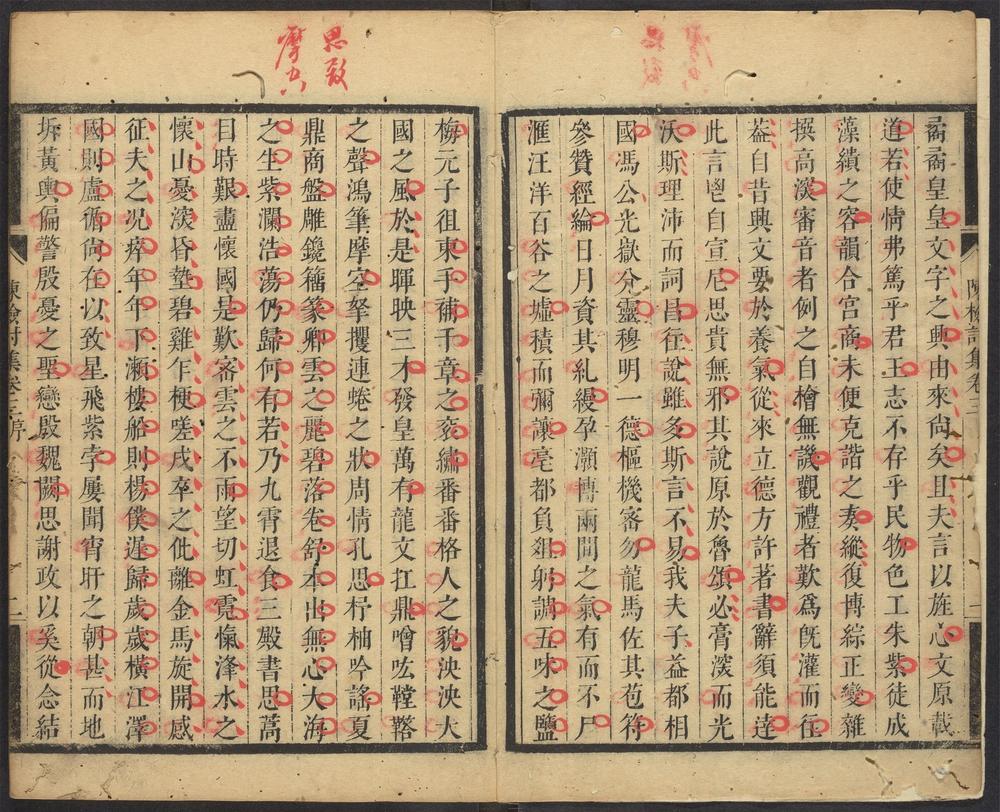 矞矞皇皇文字之興由來尙矣且夫言以旌心文原載
道若使情弗篤乎君王志不存乎民物色工朱紫徒成
藻繢之容韻合宮商未便克諧之奏縱復博綜正變雜
撰高深審音者例之自檜無譏觀禮者歎爲旣灌而往
葢自昔興文要於養氣從來立德方許若書辭須能達
此言鬯自宣尼思貴無邪其說原於魯頌必膏深而光
沃斯理沛而詞昌往說雖多斯言不易我夫子益都相
國馮公光嶽分靈穆明一德樞機密勿龍馬佐其苞符
參贊經綸日月資其糺縵孕灝博兩閒之氣有而不尸
滙汪洋百谷之墟積而彌讓亳都負俎躬調五味之鹽
梅元子徂東手補千章之衮繡番番格人之貌泱泱大
國之風於是暉映三才發皇萬有龍文扛鼎噌吰鞺鞳
之聲鴻筆摩空拏攫連蜷之狀周情孔思杼柚吟謠夏
鼎商盤雕鑱籒篆卿雲之麗碧落卷舒本出無心大海
之生紫瀾浩蕩仍歸何有若乃九霄退食三殿書思蒿
目時艱盡懷國是歎密雲之不雨望切虹霓愾洚水之
懷山憂深昏墊碧雞乍梗嗟戍卒之仳離金馬旋開感
征夫之况瘁年年下瀨樓船則楊僕遲歸歲歲橫江澤
國則盧循尙在以致星飛紫孛屢聞宵旰之朝甚而地
坼黃輿偏警殷憂之聖戀殷魏闕思謝政以奚從念結
陳檢討集卷三
陳檢討集卷三序
二
思致
摩空